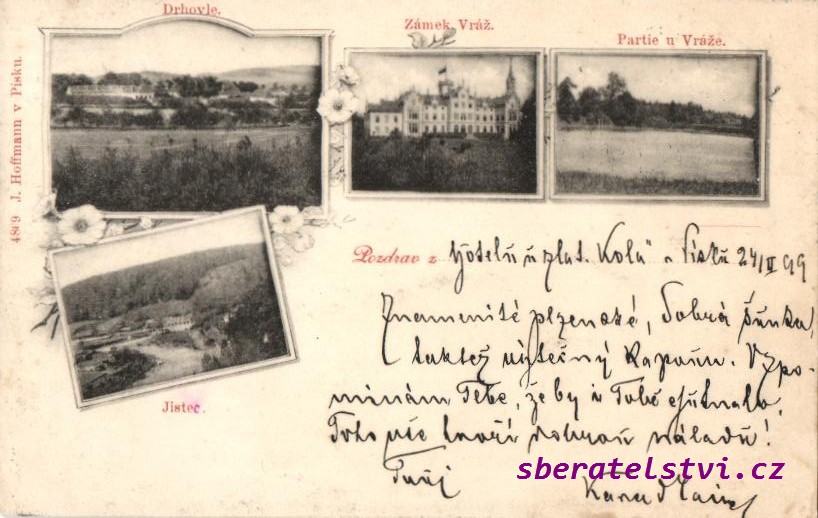 Drhovle.
Zámek Vráž.
Partie u Vráže.
4809 J. Hoffmann v Písku.
Jistec.
Pozdrav z Hotelu u zlat. Kola" v Písku 24/II 99
Znamenité plzenské, dobrá šunka,
taktéž výtečný kapoun. Vzpo-
mínám Tebe, že by i Tobě chutnalo.
Toho vše tvoří dobrou náladu!
Tvůj
sberatelstvi.cz